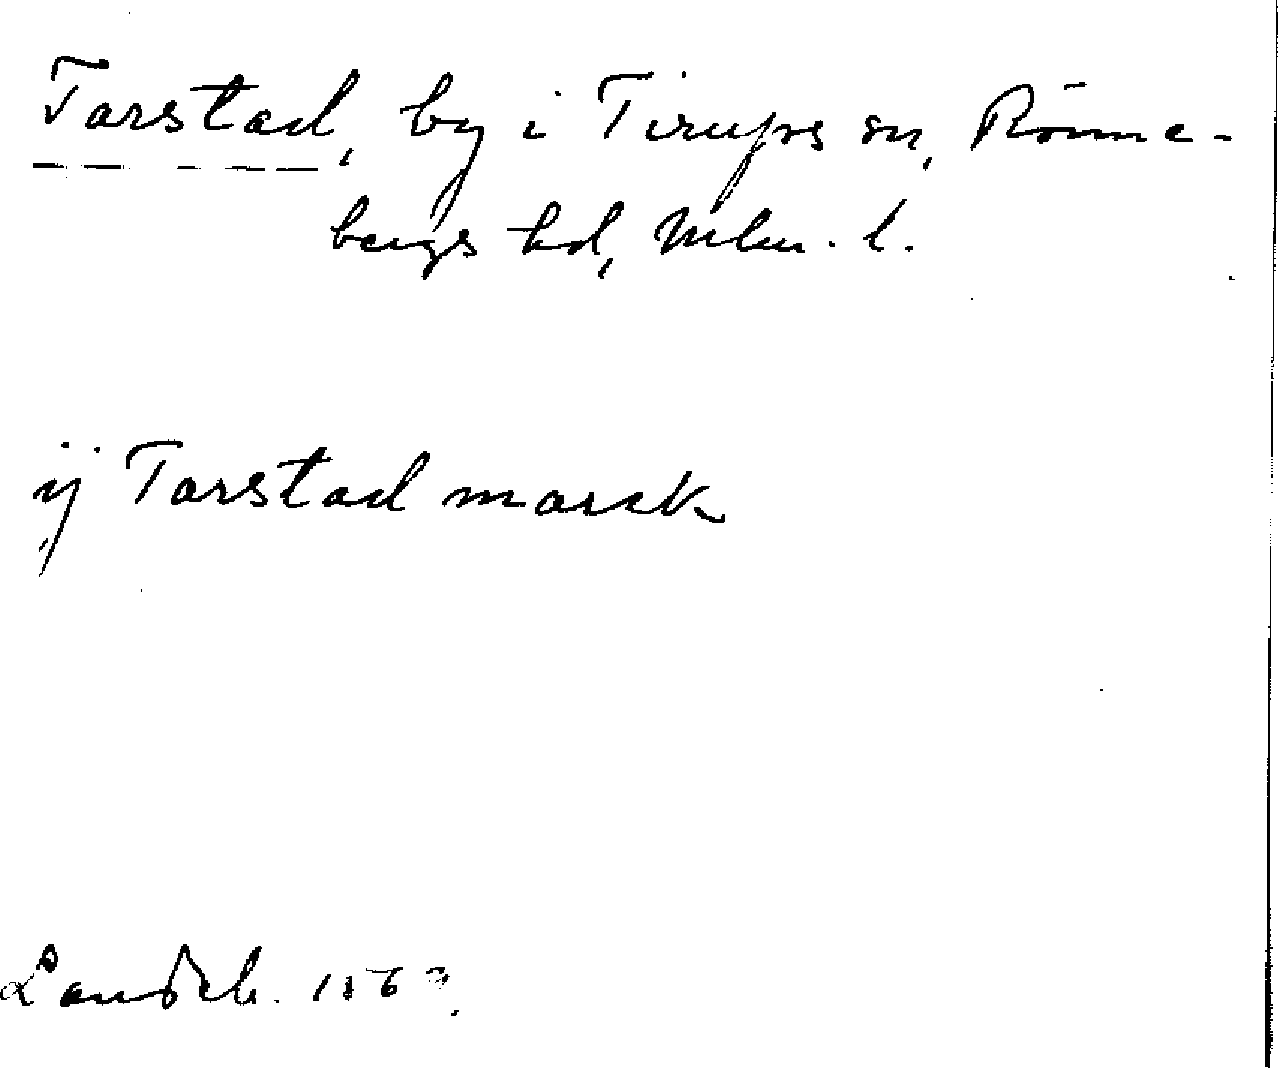 Tarstad, by i Tirups sn, Rönne-
bergs hd, Mlm. l.
ij Tarstad marck
Landeb.